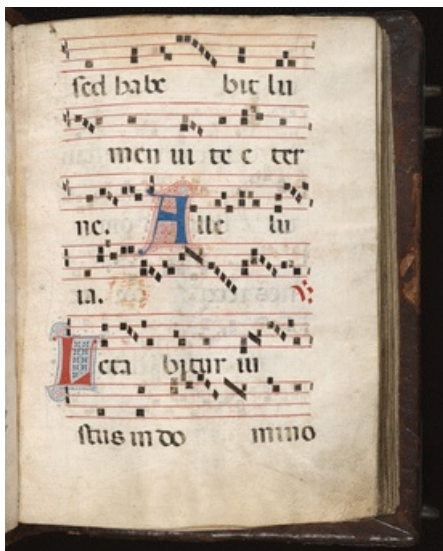 sed habe bit lu
men ui te e ter
ne. Alle lu
ia. ℣
Leta bitur iu
stus in do mino